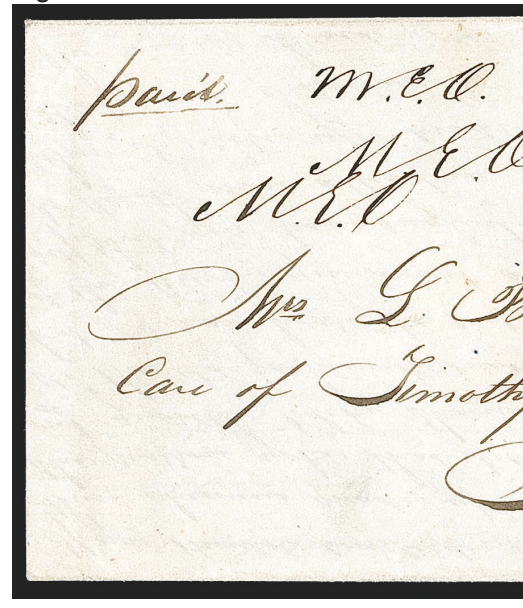 paid. M.E.O.
M.E.O
M.E.O
Mrs L.
Care of Timothy